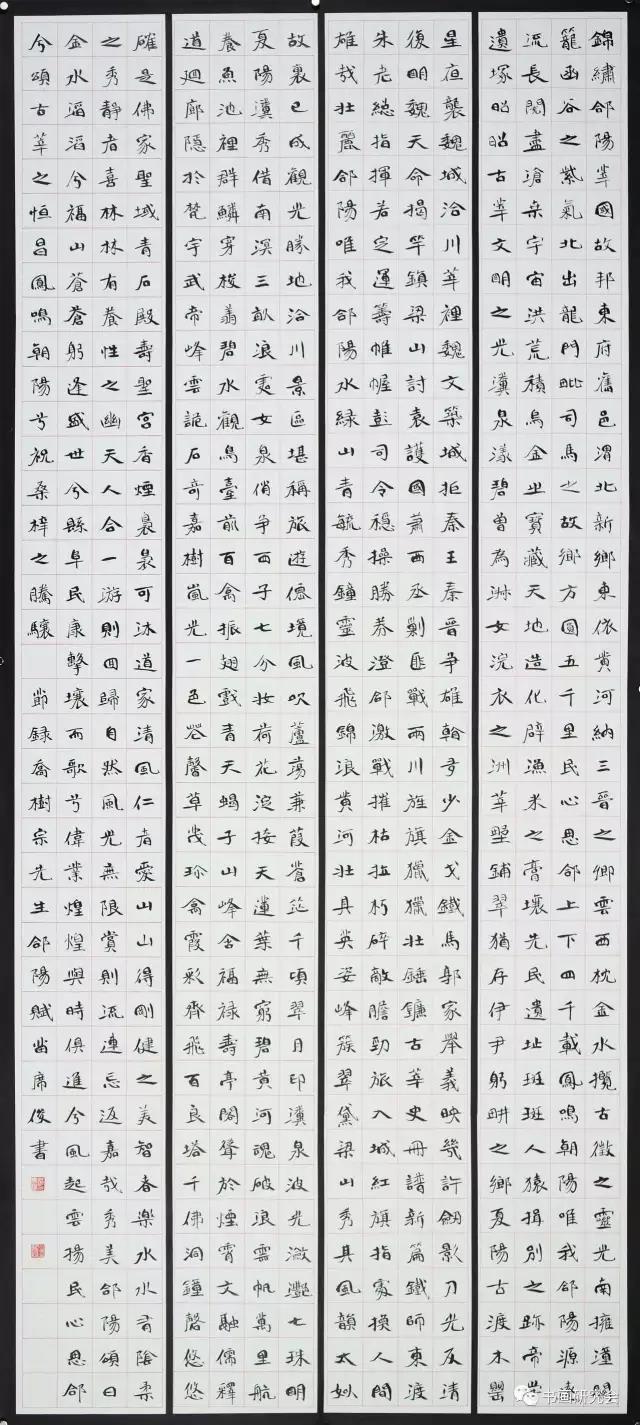 錦繡郃陽莘國故邦東府舊邑渭北新鄉東依黃河納三晉之卿雲西枕金水攬古徵之靈光南擁潼關
籠函谷之紫氣北出龍門毗司馬之故鄉方圓五千里民心思郃上下四千載鳳鳴朝陽唯我郃陽源遠
流長閱盡滄桑宇宙洪荒積烏金之寶藏天地造化辟漁米之膏壤先民遺址斑斑人猿揖別之跡帝嚳
遺塚昭昭古莘文明之光瀵泉漾碧曾為淑女浣衣之洲莘野鋪翠猶存伊尹躬耕之鄉夏陽古渡木罌
星夜襲魏城洽川莘裡魏文築城拒秦王秦晉爭雄多少金戈鐵馬郭家舉義映幾許劍影刀光反清
復明魏天命揭竿鎮梁山討袁護國蕭西丞剿匪戰兩川旌旗獵獵壯錘鐮古莘史冊譜新篇鐵師東渡
朱老總指揮若定運籌帷幄彭司令穩操勝券澄郃激戰摧枯拉朽碎敵膽勁旅入城紅旗指處換人間
雄哉壯麗郃陽唯我郃陽水綠山青毓秀鐘靈波飛錦浪黃河壯其英姿峰簇翠黛梁山秀其風韻太姒
故裏已成觀光勝地洽川景區堪稱旅遊僊境風吹蘆蕩蒹葭蒼茫千頃翠月印瀵泉波光瀲灩七珠明
夏陽瀵秀借南溟三畝浪處女泉俏爭西子七分妝荷花沒接天蓮葉無窮碧黃河魂破浪雲帆萬里航
養魚池裡群鱗穿梭翥碧水觀鳥臺前百禽振翅戲青天蝎子山峰含福祿壽亭閣聲於煙霄文融儒釋
道迴廊隱於梵宇武帝峰雲詭石奇嘉樹嵐光一色蒼馨草幾珍禽霞彩齊飛百良塔千佛洞鐘磬悠悠
確是佛家聖域青石殿壽聖宮香煙裊裊可沐道家清風仁者愛山山得剛健之美智者樂水水有陰柔
之秀靜者喜林林有養性之幽天人合一游則回歸自然風光無限賞則流連忘返嘉哉秀美郃陽頌曰
金水滔滔兮福山蒼蒼躬逢盛世兮縣阜民康擊壤而歌兮偉業煌煌與時俱進兮風起雲揚民心思郃
兮頌古莘之恒昌鳳鳴朝陽兮祝桑梓之騰驤 節錄喬樹宗先生郃陽賦 席俊書
书画研究会